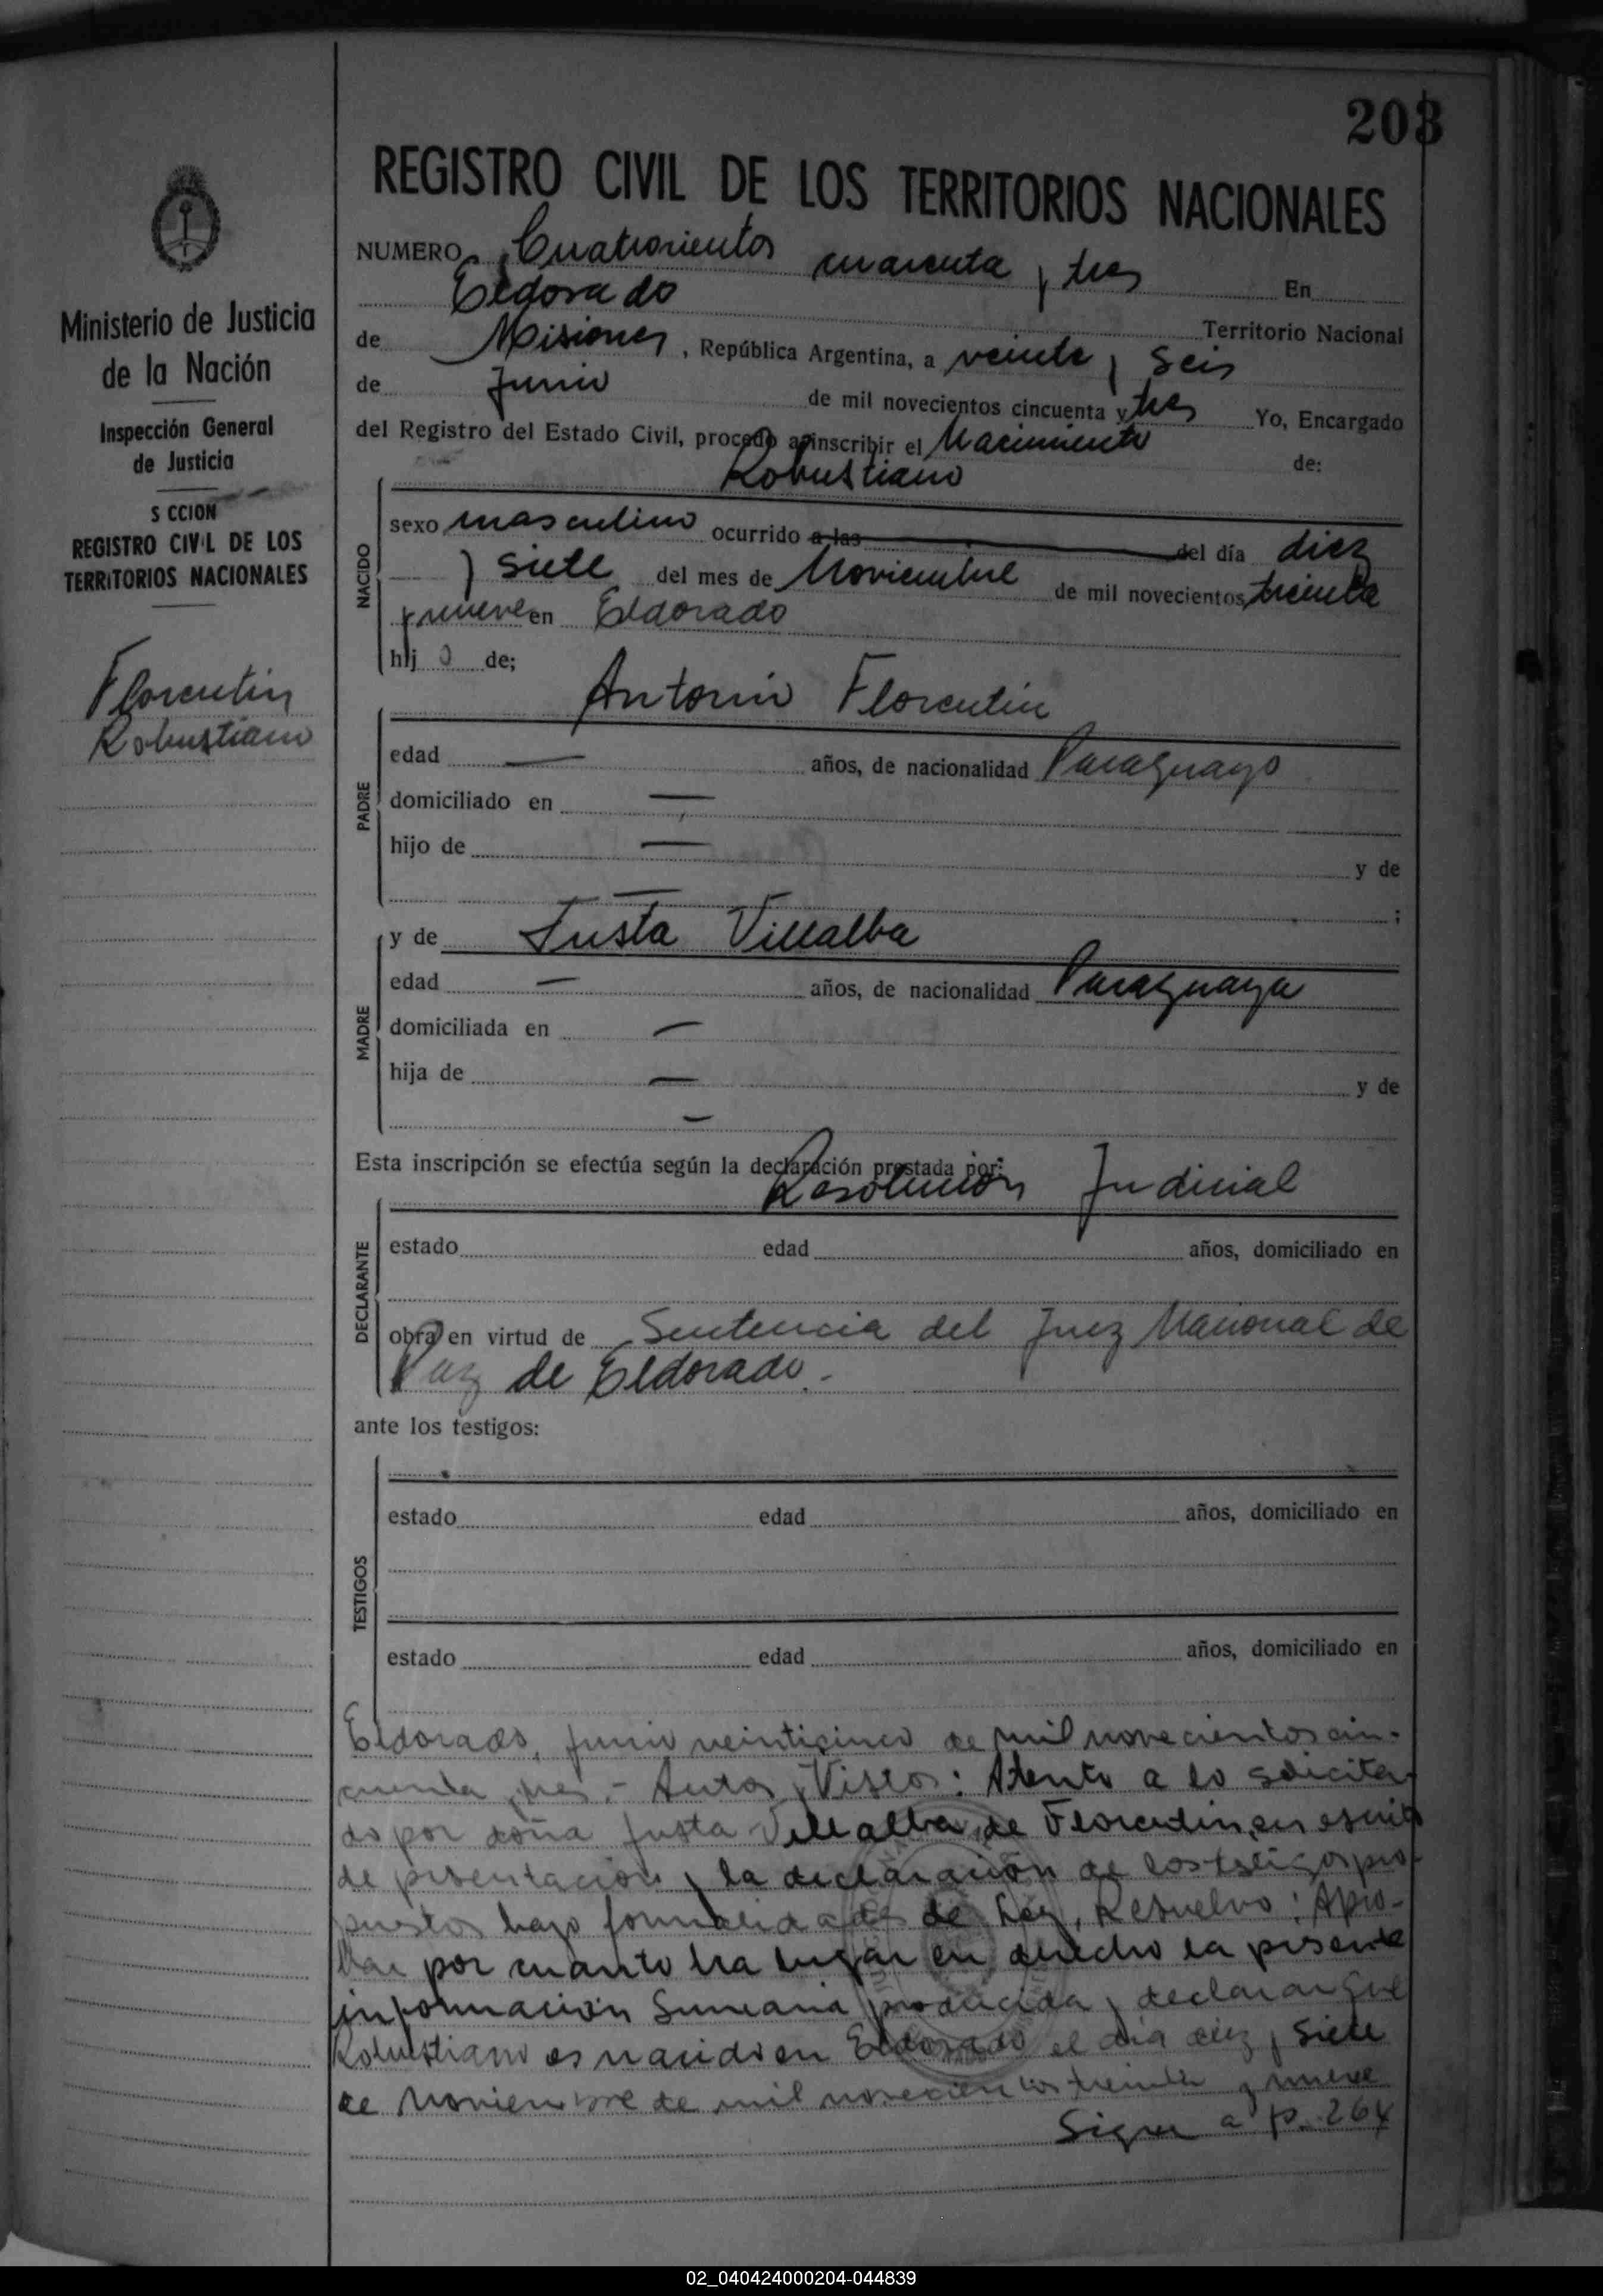 203
REGISTRO CIVIL DE LOS TERRITORIOS NACIONALES
Ministerio de Justicia
de la Nación
Inspección General
de Justicia
S CCION
REGISTRO CIV L DE LOS
TERRITORIOS NACIONALES
Florentin
Robustiano
NUMERO Cuatrocientos cuarenta y tres En
Eldorado Territorio Nacional
de Misiones, República Argentina, a veinte y seis
de Junio de mil novecientos cincuenta y tres Yo, Encargado
del Registro del Estado Civil, procedo a inscribir el Nacimiento de:
Robustiano
NACIDO
sexo masculino ocurrido a las del día diez
y siete del mes de Noviembre de mil novecientos treinta
y nueve en Eldorado
hij o de;
Antonio Florentin
PADRE
edad — años, de nacionalidad Paraguayo
domiciliado en —
hijo de — y de
— ;
MADRE
y de Justa Villalba
edad — años, de nacionalidad Paraguaya
domiciliada en —
hija de — y de
—
Esta inscripción se efectúa según la declaración prestada por:
Resolucion Judicial
DECLARANTE
estado edad años, domiciliado en
obra en virtud de Sentencia del Juez Nacional de
Paz de Eldorado.-
ante los testigos:
TESTIGOS
estado edad años, domiciliado en
estado edad años, domiciliado en
Eldorado, junio veinticinco de mil novecientos cin-
cuenta y tres.- Autos y Vistos: Atento a lo solicita-
do por doña Justa Villalba de Florentin, en escrito
de presentación y la declaración de los testigos pro-
puestos bajo formalidades de Ley, Resuelvo: Apro-
bar por cuanto ha lugar en derecho la presente
información Sumaria producida y declarar que
Robustiano es nacido en Eldorado el dia diez y siete
de Noviembre de mil novecientos treinta y nueve
Sigue a p. 264
02_040424000204-044839